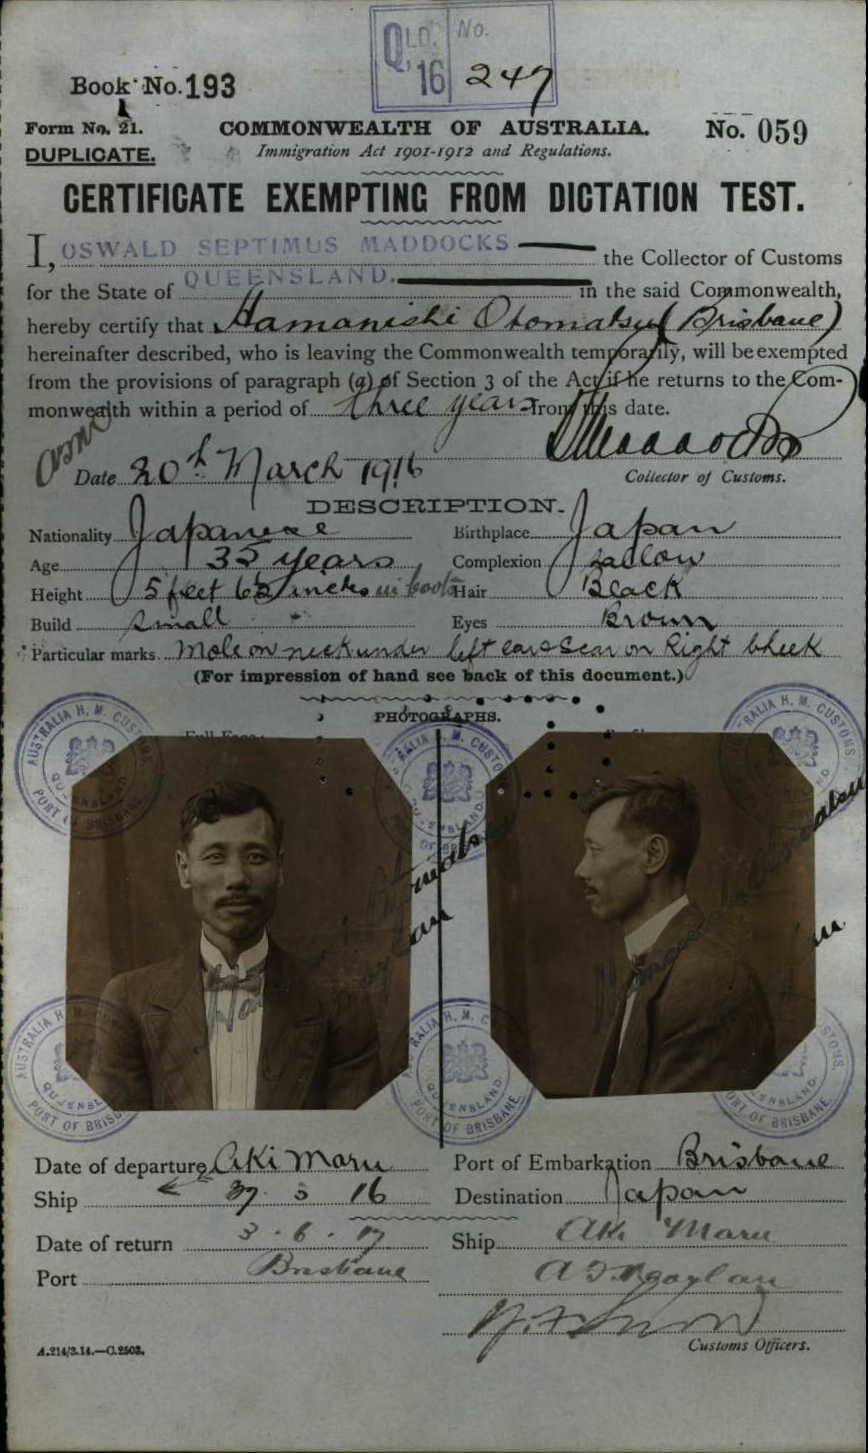 QLD. No.
16 247
Book No. 193
Form No. 21. COMMONWEALTH OF AUSTRALIA. No. 059
DUPLICATE. Immigration Act 1901-1912 and Regulations.
CERTIFICATE EXEMPTING FROM DICTATION TEST.
I, OSWALD SEPTIMUS MADDOCKS the Collector of Customs
for the State of QUEENSLAND. in the said Commonwealth,
hereby certify that Hamanishi Otomatsu (Brisbane)
hereinafter described, who is leaving the Commonwealth temporarily, will be exempted
from the provisions of paragraph (a) of Section 3 of the Act if he returns to the Com-
monwealth within a period of three years from this date.
Date 20th March 1916 Collector of Customs.
DESCRIPTION.
Nationality Japanese Birthplace Japan
Age 35 years Complexion Sallow
Height 5 feet 6½ inches in boots Hair Black
Build Small Eyes Brown
Particular marks Mole on neck under left ear Scar on Right Cheek
(For impression of hand see back of this document.)
PHOTOGRAPHS.
AUSTRALIA H. M. CUSTOMS.
QUEENSLAND
PORT OF BRISBANE
Date of departure Aki Maru Port of Embarkation Brisbane
Ship 27 3 16 Destination Japan
Date of return 3.6.17 Ship Aki Maru
Port Brisbane
Customs Officers.
A.214/3.14.—C.2503.